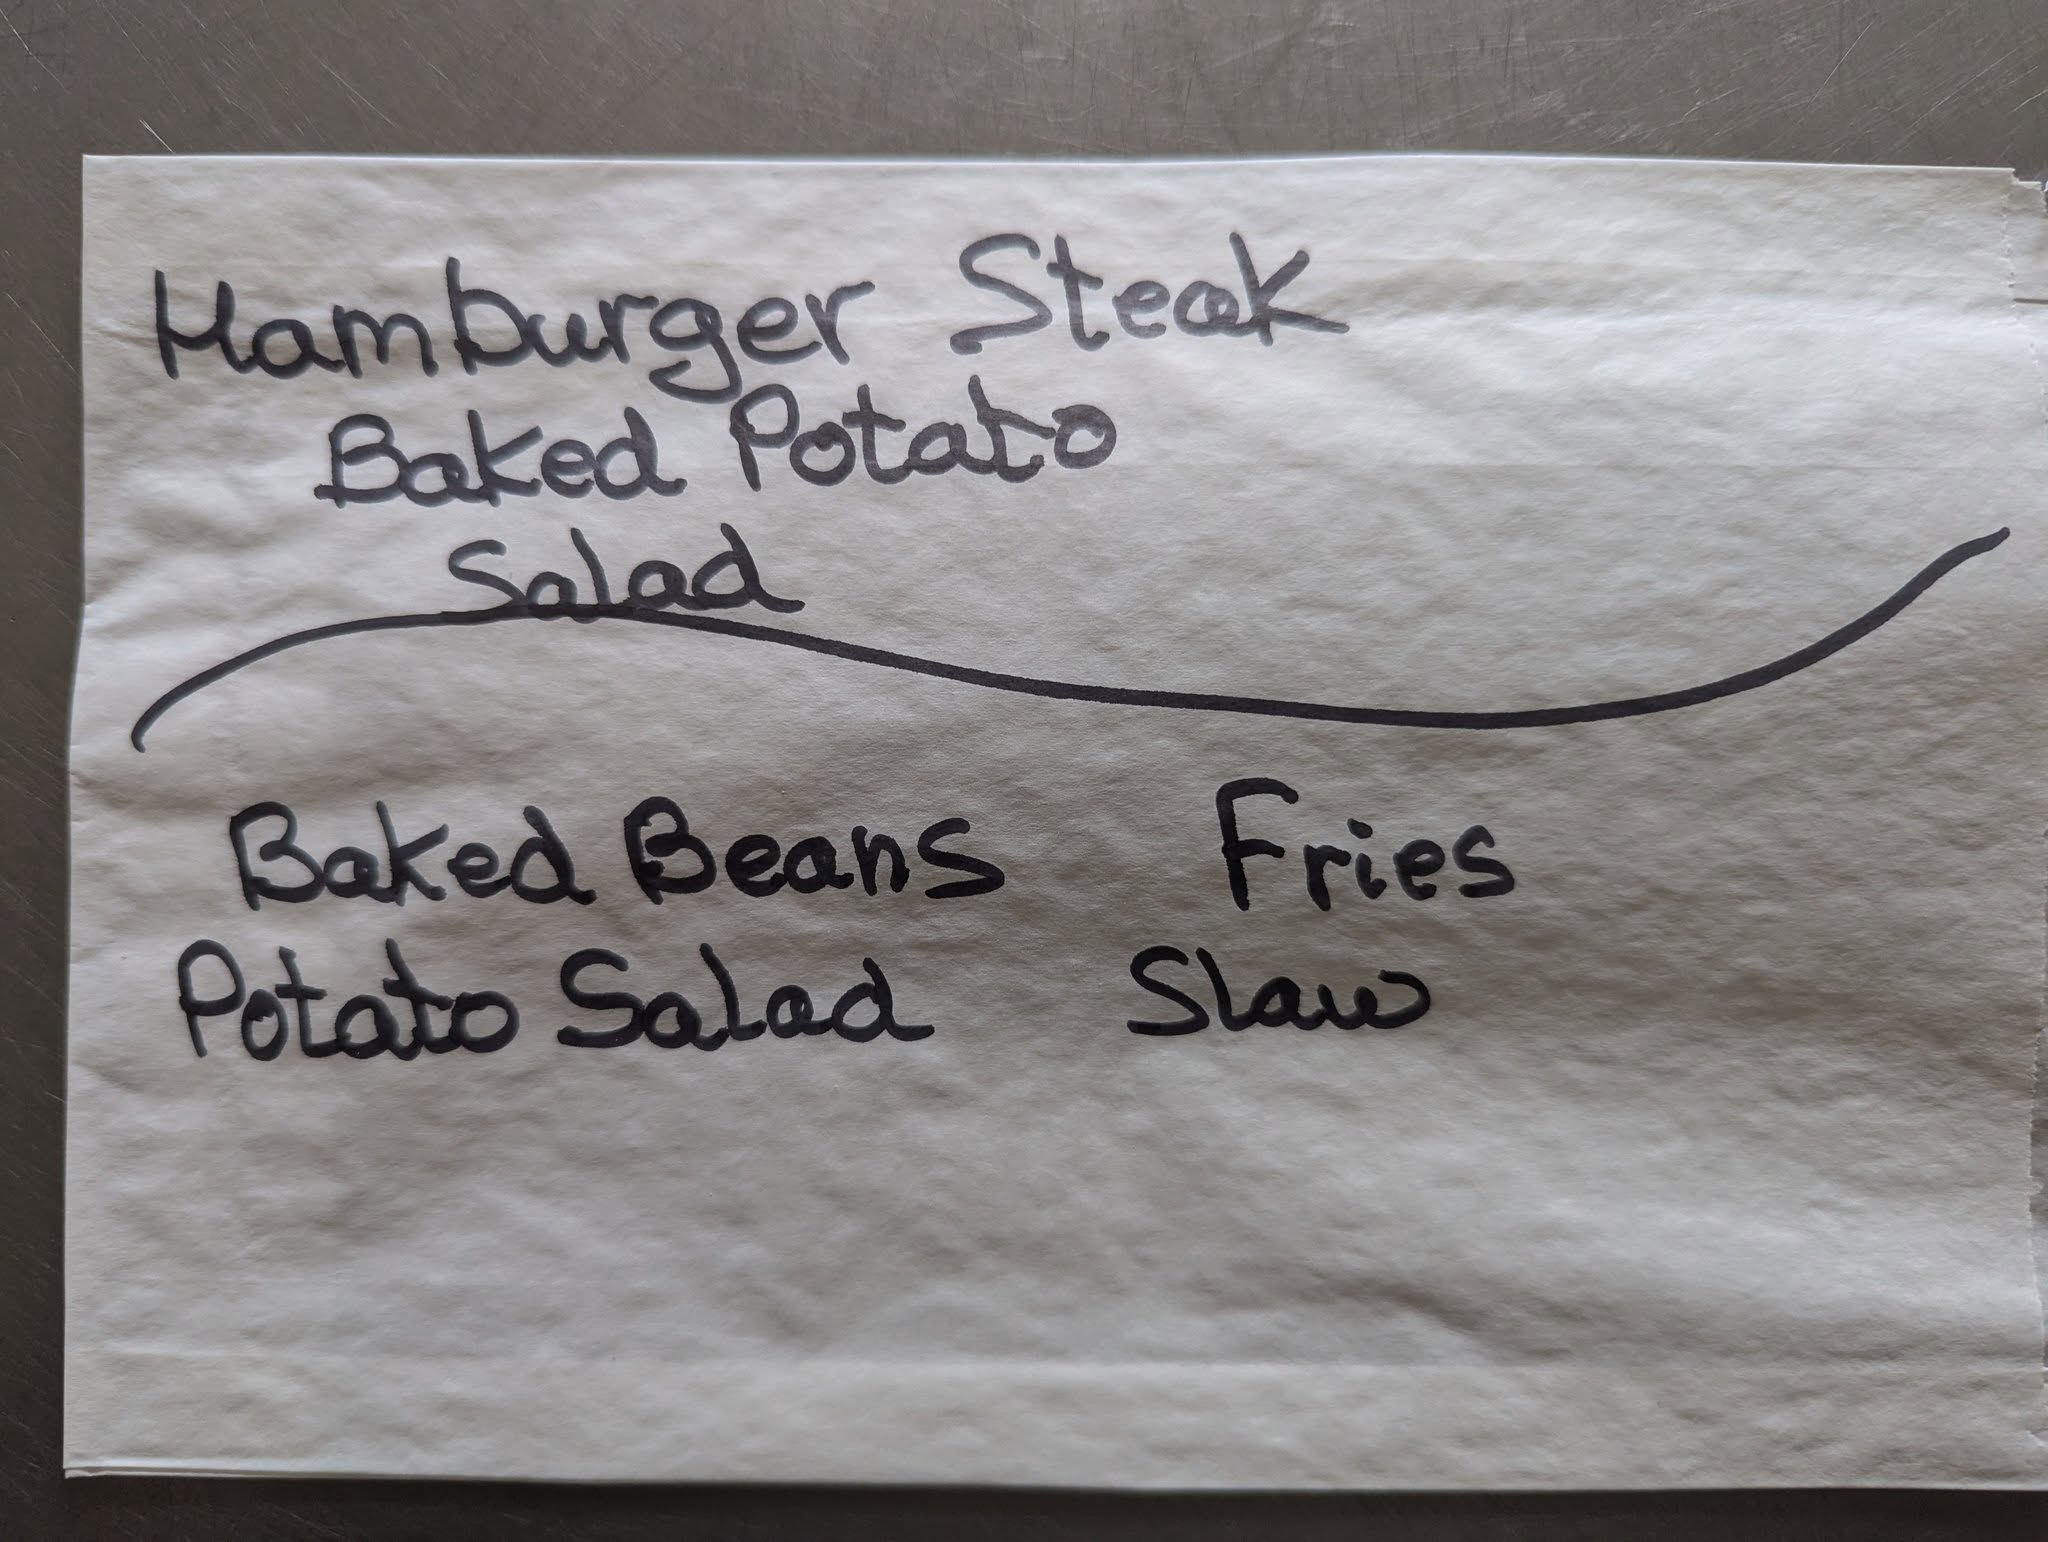 Hamburger Steak
Baked Potato
Salad
Baked Beans Fries
Potato Salad Slaw